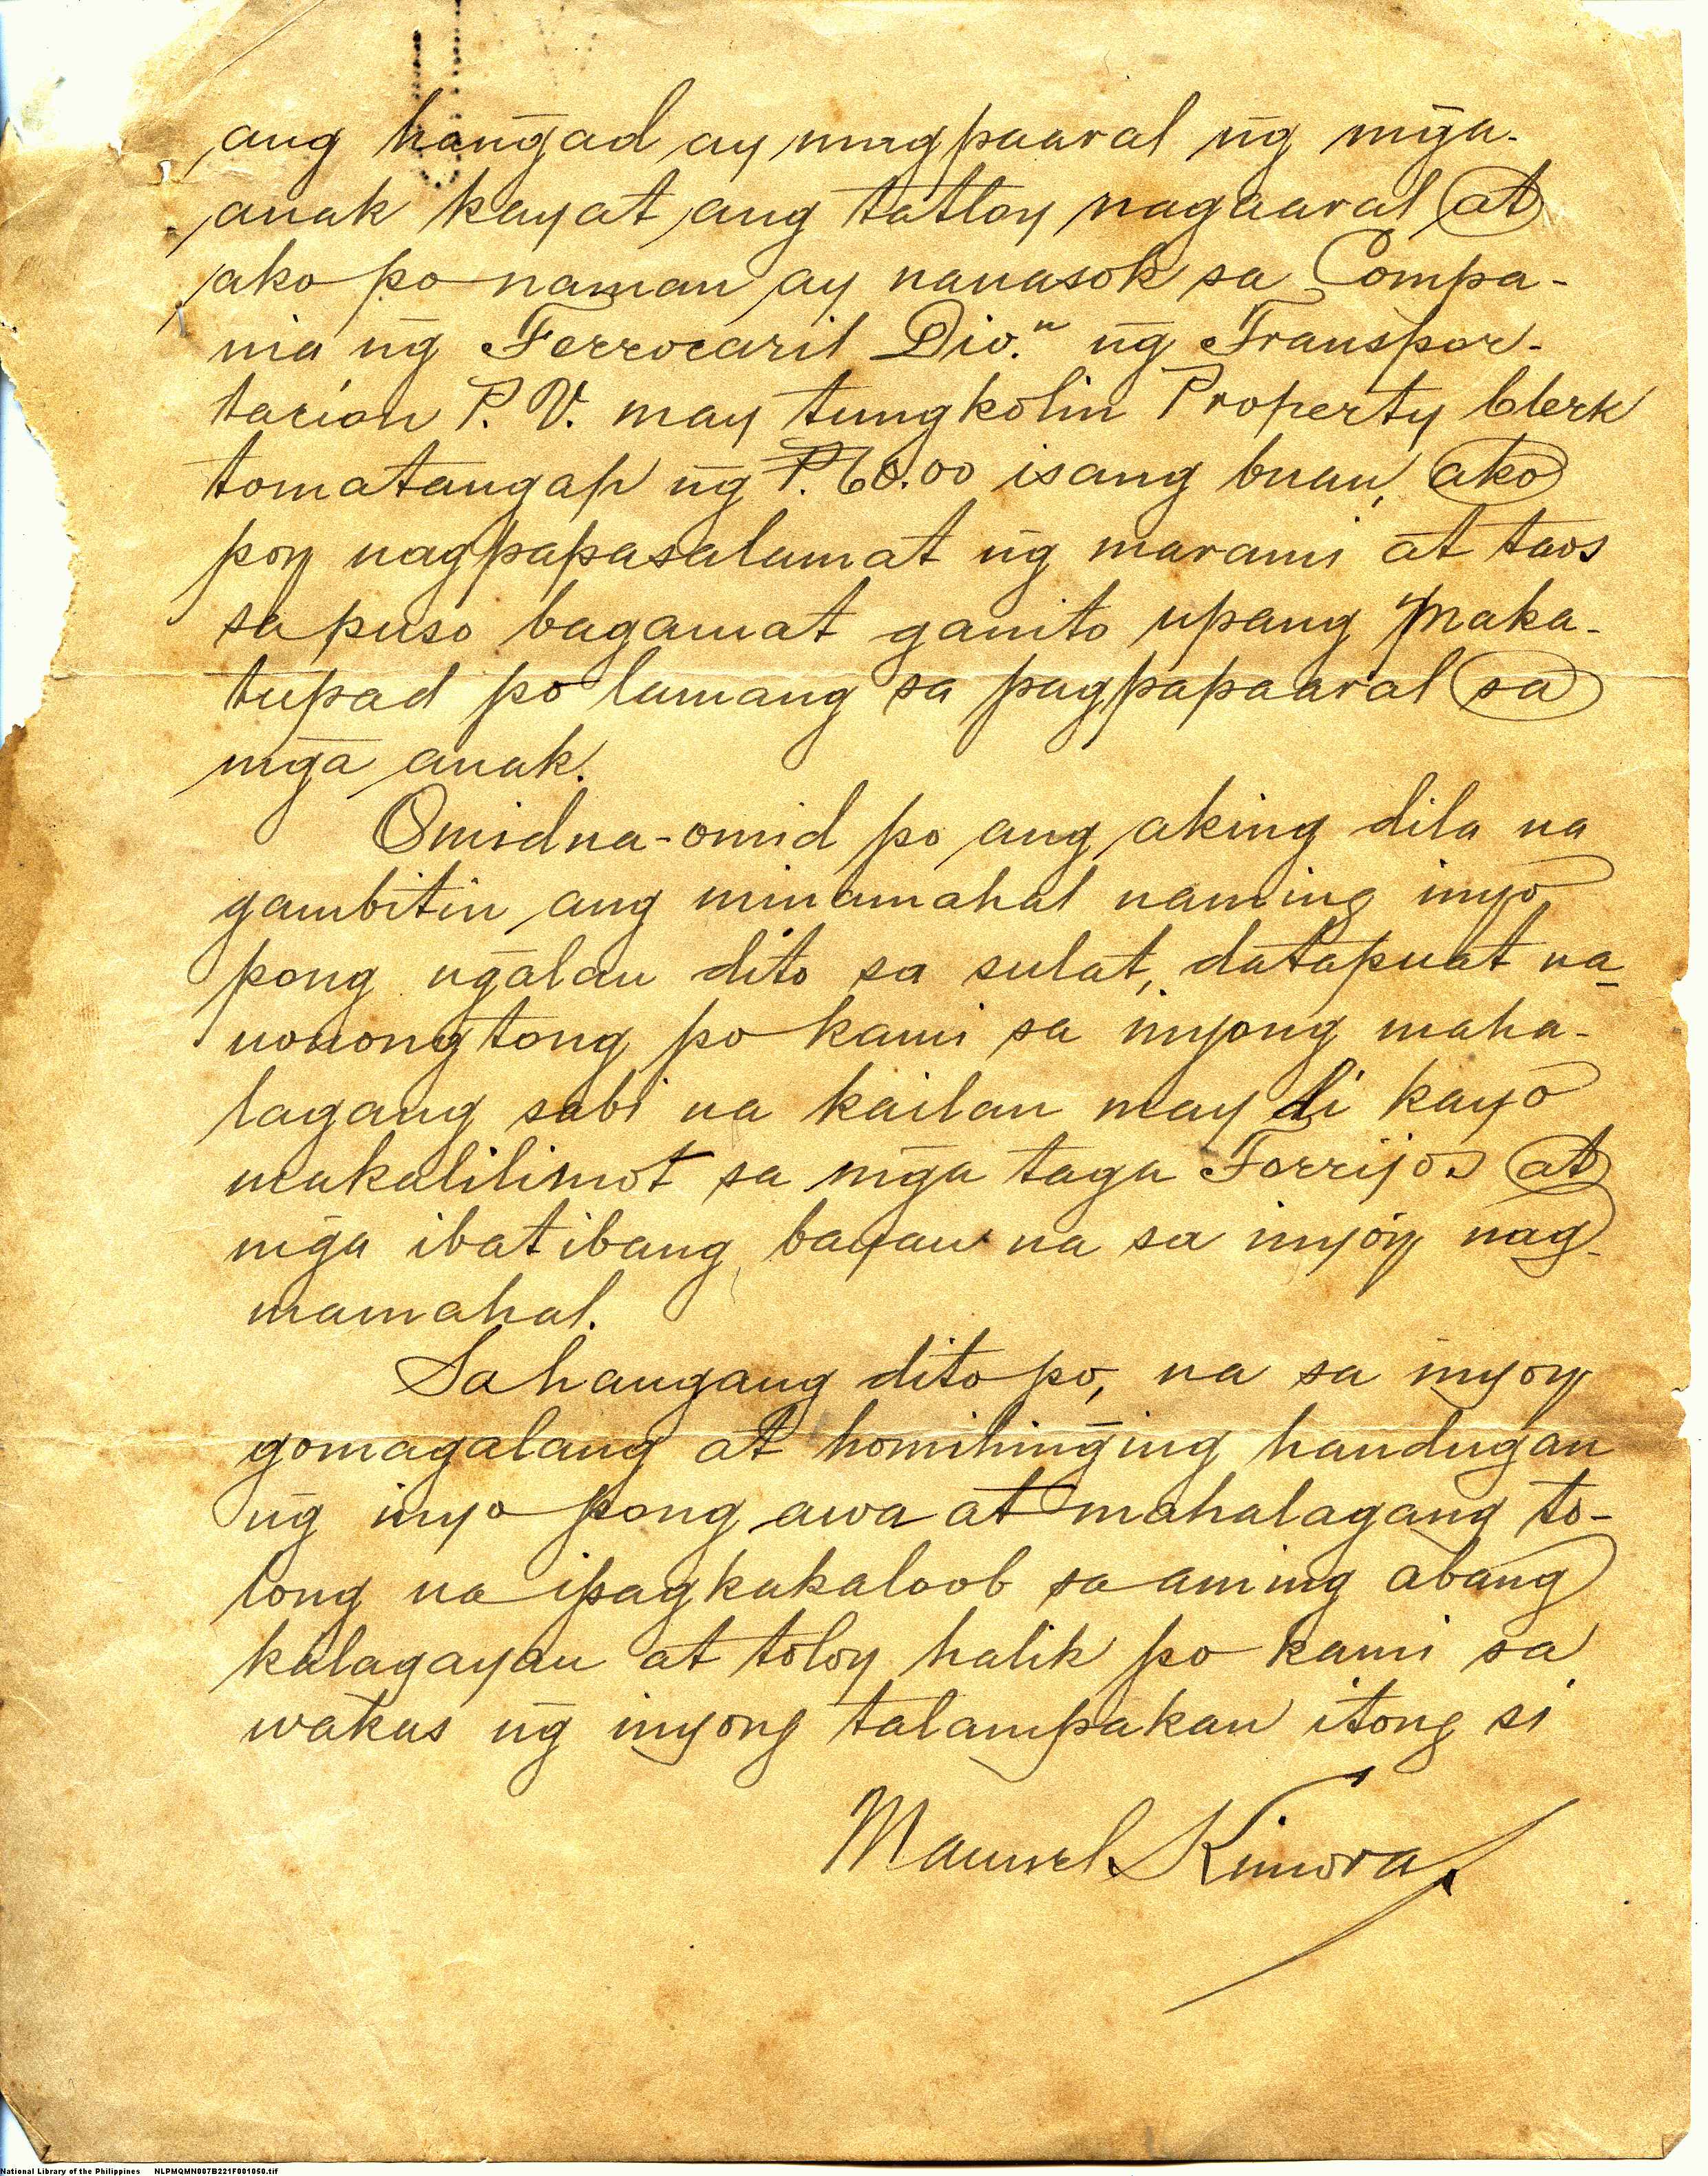 ang hang̃ad ay magpaaral ng̃ mg̃a-
anak kayat ang tatloy nagaaral at
ako po naman ay nanasok sa Compa-
nia ng̃ Ferrocaril Div.n ng̃ Transpor-
tacion P. V. may tungkolin Property Clerk
tomatangap ng̃ P.60.00 isang buan, ako
poy nagpapasalamat ng̃ marami at taos
sa puso bagamat ganito upang maka-
tupad po lamang sa pagpapaaral sa
mg̃a anak.
Omidna-omid po ang aking dila na
gambitin ang minamahal naming inyo
pong ng̃alan dito sa sulat, datapuat na
nonongtong po kami sa inyong maha-
lagang sabi na kailan may di kayo
makalilimot sa mg̃a taga Torrijos at
mg̃a ibatibang bayan na sa inyoy nag-
mamahal.
Sahangang dito po, na sa inyoy
gomagalang at homihing̃ing handugan
ng̃ inyo pong awa at mahalagang to-
long na ipagkakaloob sa aming abang
kalagayan at toloy halik po kami sa
wakas ng̃ inyong talampakan itong si
Manuel Kimora
National Library of the Philippines NLPMQMN007B221F001050.tif